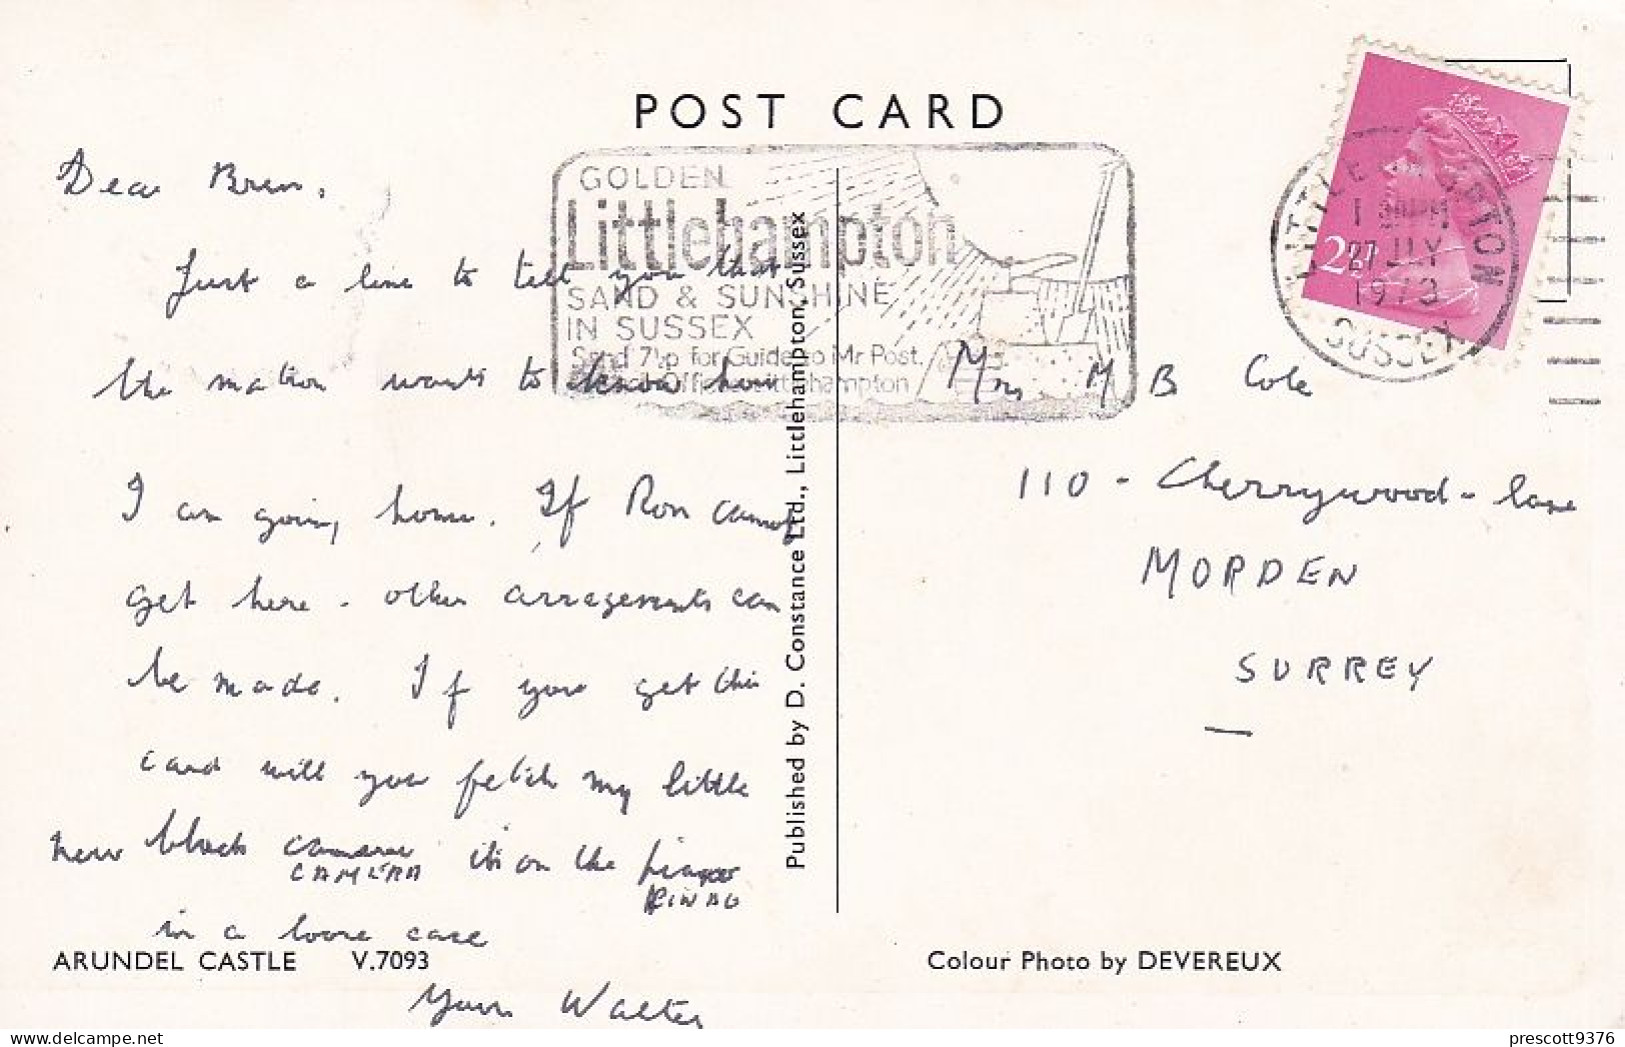 POST CARD
Dear Bren,
Just a line to tell you that
the matron wants to know how
I am going home. If Ron cannot
get here - other arragements can
be made. If you get this
card will you fetch my little
new black camera its on the
CAMERA
in a loose case
Yours Walter
ARUNDEL CASTLE V.7093
GOLDEN
Littlehampton
SAND & SUNSHINE
IN SUSSEX
Send 7½p for Guide to Mr Post,
Littlehampton
Published by D. Constance Ltd., Littlehampton, Sussex
LITTLEHAMPTON
1 30PM
21 JLY
1973
SUSSEX
2½P
Mrs M B Cole
110 - Cherrywood - lane
MORDEN
SURREY
Colour Photo by DEVEREUX
prescott9376